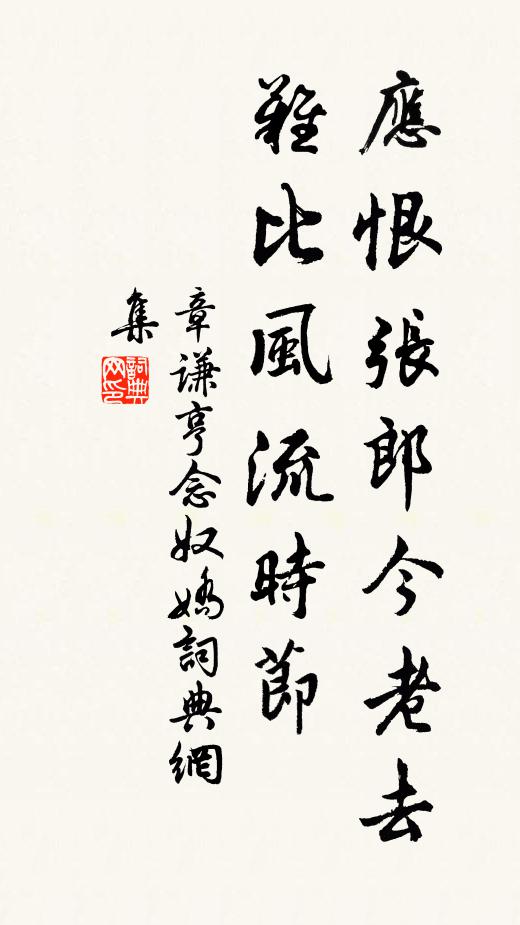 應恨張郎今老去
難比風流時節
章謙亨念奴嬌詞典網
集
詞典
网印